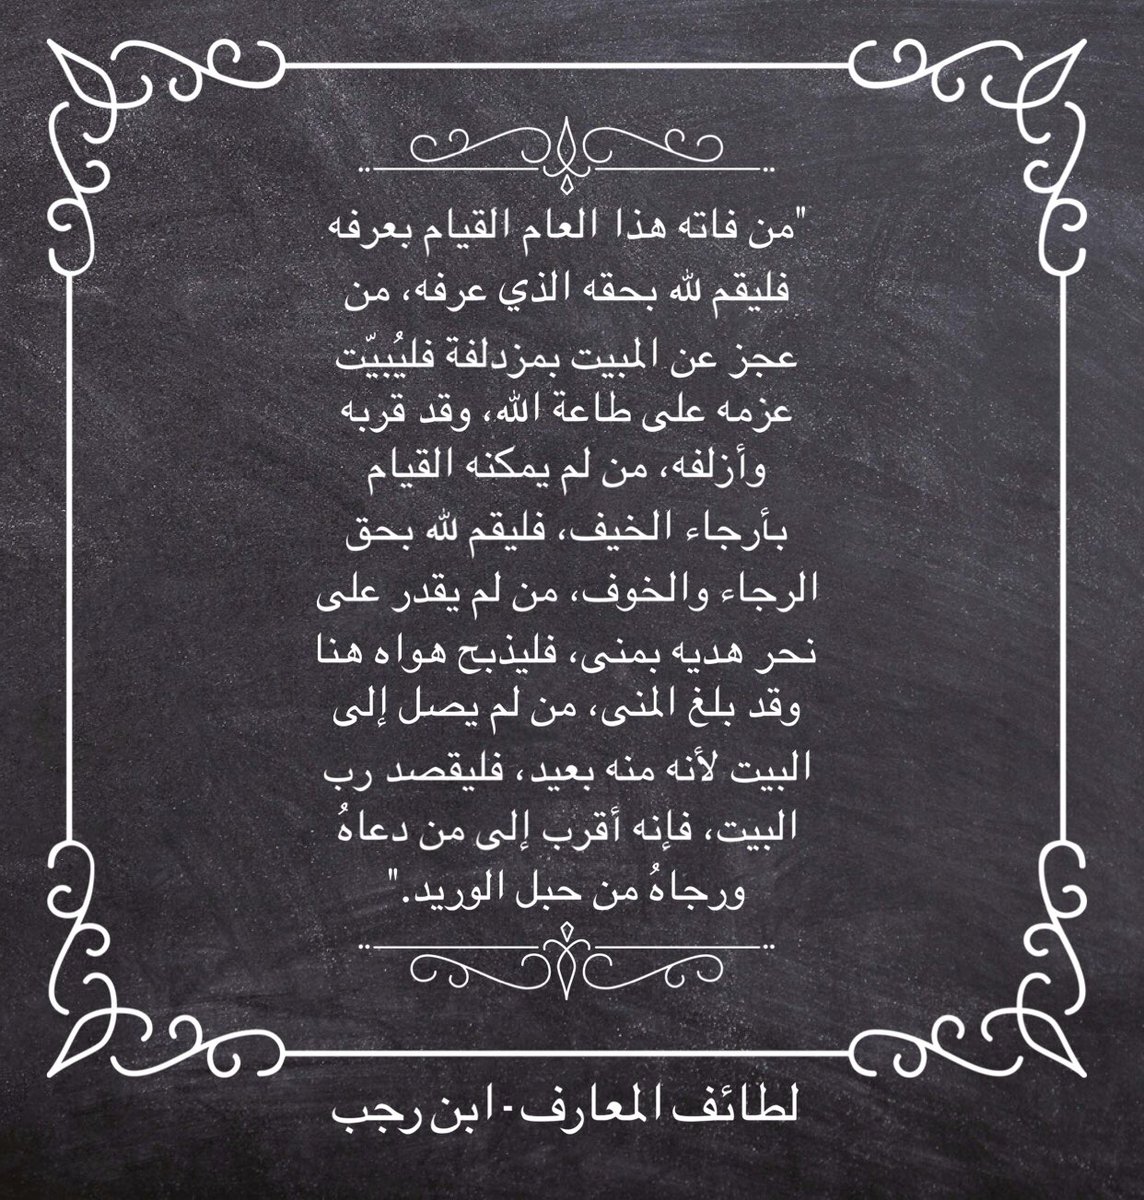 "من فاته هذا العام القيام بعرفه
فليقم لله بحقه الذي عرفه، من
عجز عن المبيت بمزدلفة فليُبيّت
عزمه على طاعة الله، وقد قربه
وأزلفه، من لم يمكنه القيام
بأرجاء الخيف، فليقم لله بحق
الرجاء والخوف، من لم يقدر على
نحر هديه بمنى، فليذبح هواه هنا
وقد بلغ المنى، من لم يصل إلى
البيت لأنه منه بعيد، فليقصد رب
البيت، فإنه أقرب إلى من دعاهُ
ورجاهُ من حبل الوريد."
لطائف المعارف - ابن رجب